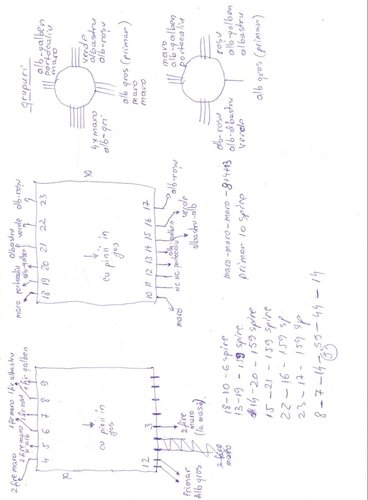 grupuri
alb-galben
portocaliu
maro
verde
albastru
alb-roșu
4x maro
alb-gri
alb gros (primar)
maro
maro
maro
alb-galben
portocaliu
roșu
alb-galben
alb gros (primar)
alb-roșu
alb-albastru
verde
X
18 19 20 21 22 23
maro
portocaliu
alb-galben
albastru
verde
alb-roșu
↓
cu pinii in
jos
10 11 12 13 14 15 16 17
maro
NC
NC
portocaliu
alb-galben
albastru-alb
verde
alb-roșu
2 fire maro
1 fir maro
1 fir albastru
1 fir galben
4 5 6 7 8 9
X
↓
cu pinii in
jos
12 3
Primar
Alb gros
2 fire
maro
2 fire
maro
(la masa)
maro-maro-maro-8+4+13
primar 10 spire
18-10-6 spire
13-19-159 spire
14-20-159 spire
15-21-159 spire
22-16-159 sp
23-17-159 sp
8-7-14-59-44-14